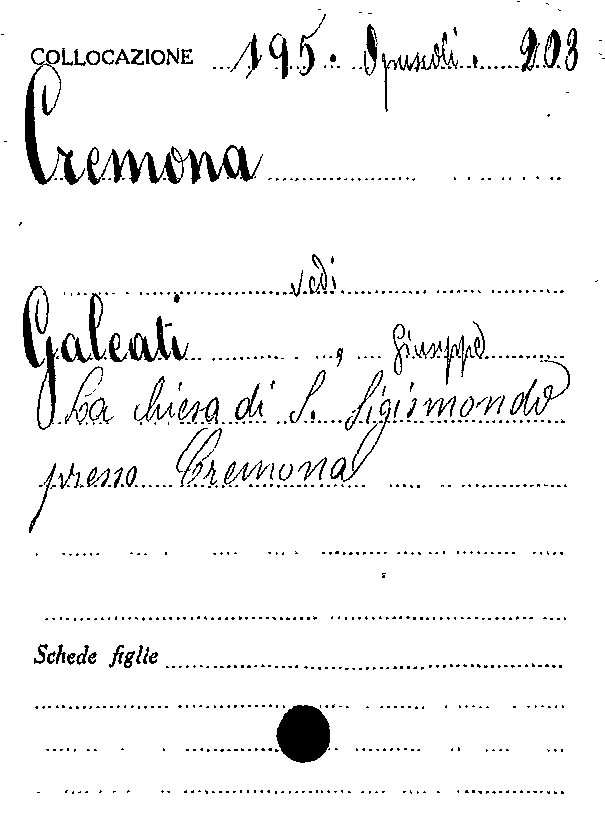 COLLOCAZIONE 195. Opuscoli. 203
Cremona
vedi
Galeati, Giuseppe
La chiesa di S. Sigismondo
presso Cremona
Schede figlie